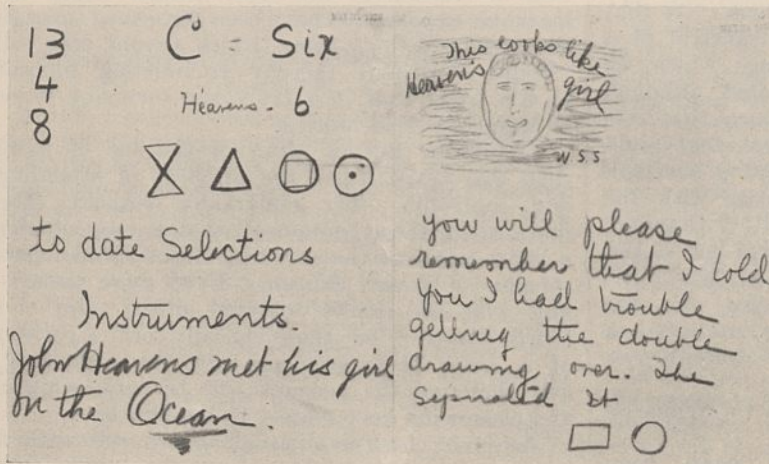 13
4
8
C - Six
Heavens - 6
to date Selections
Instruments.
John Heavens met his girl
on the Ocean.
This looks like
Heaven's girl
W.S.S
you will please
remember that I told
you I had trouble
getting the double
drawing over. She
separated it